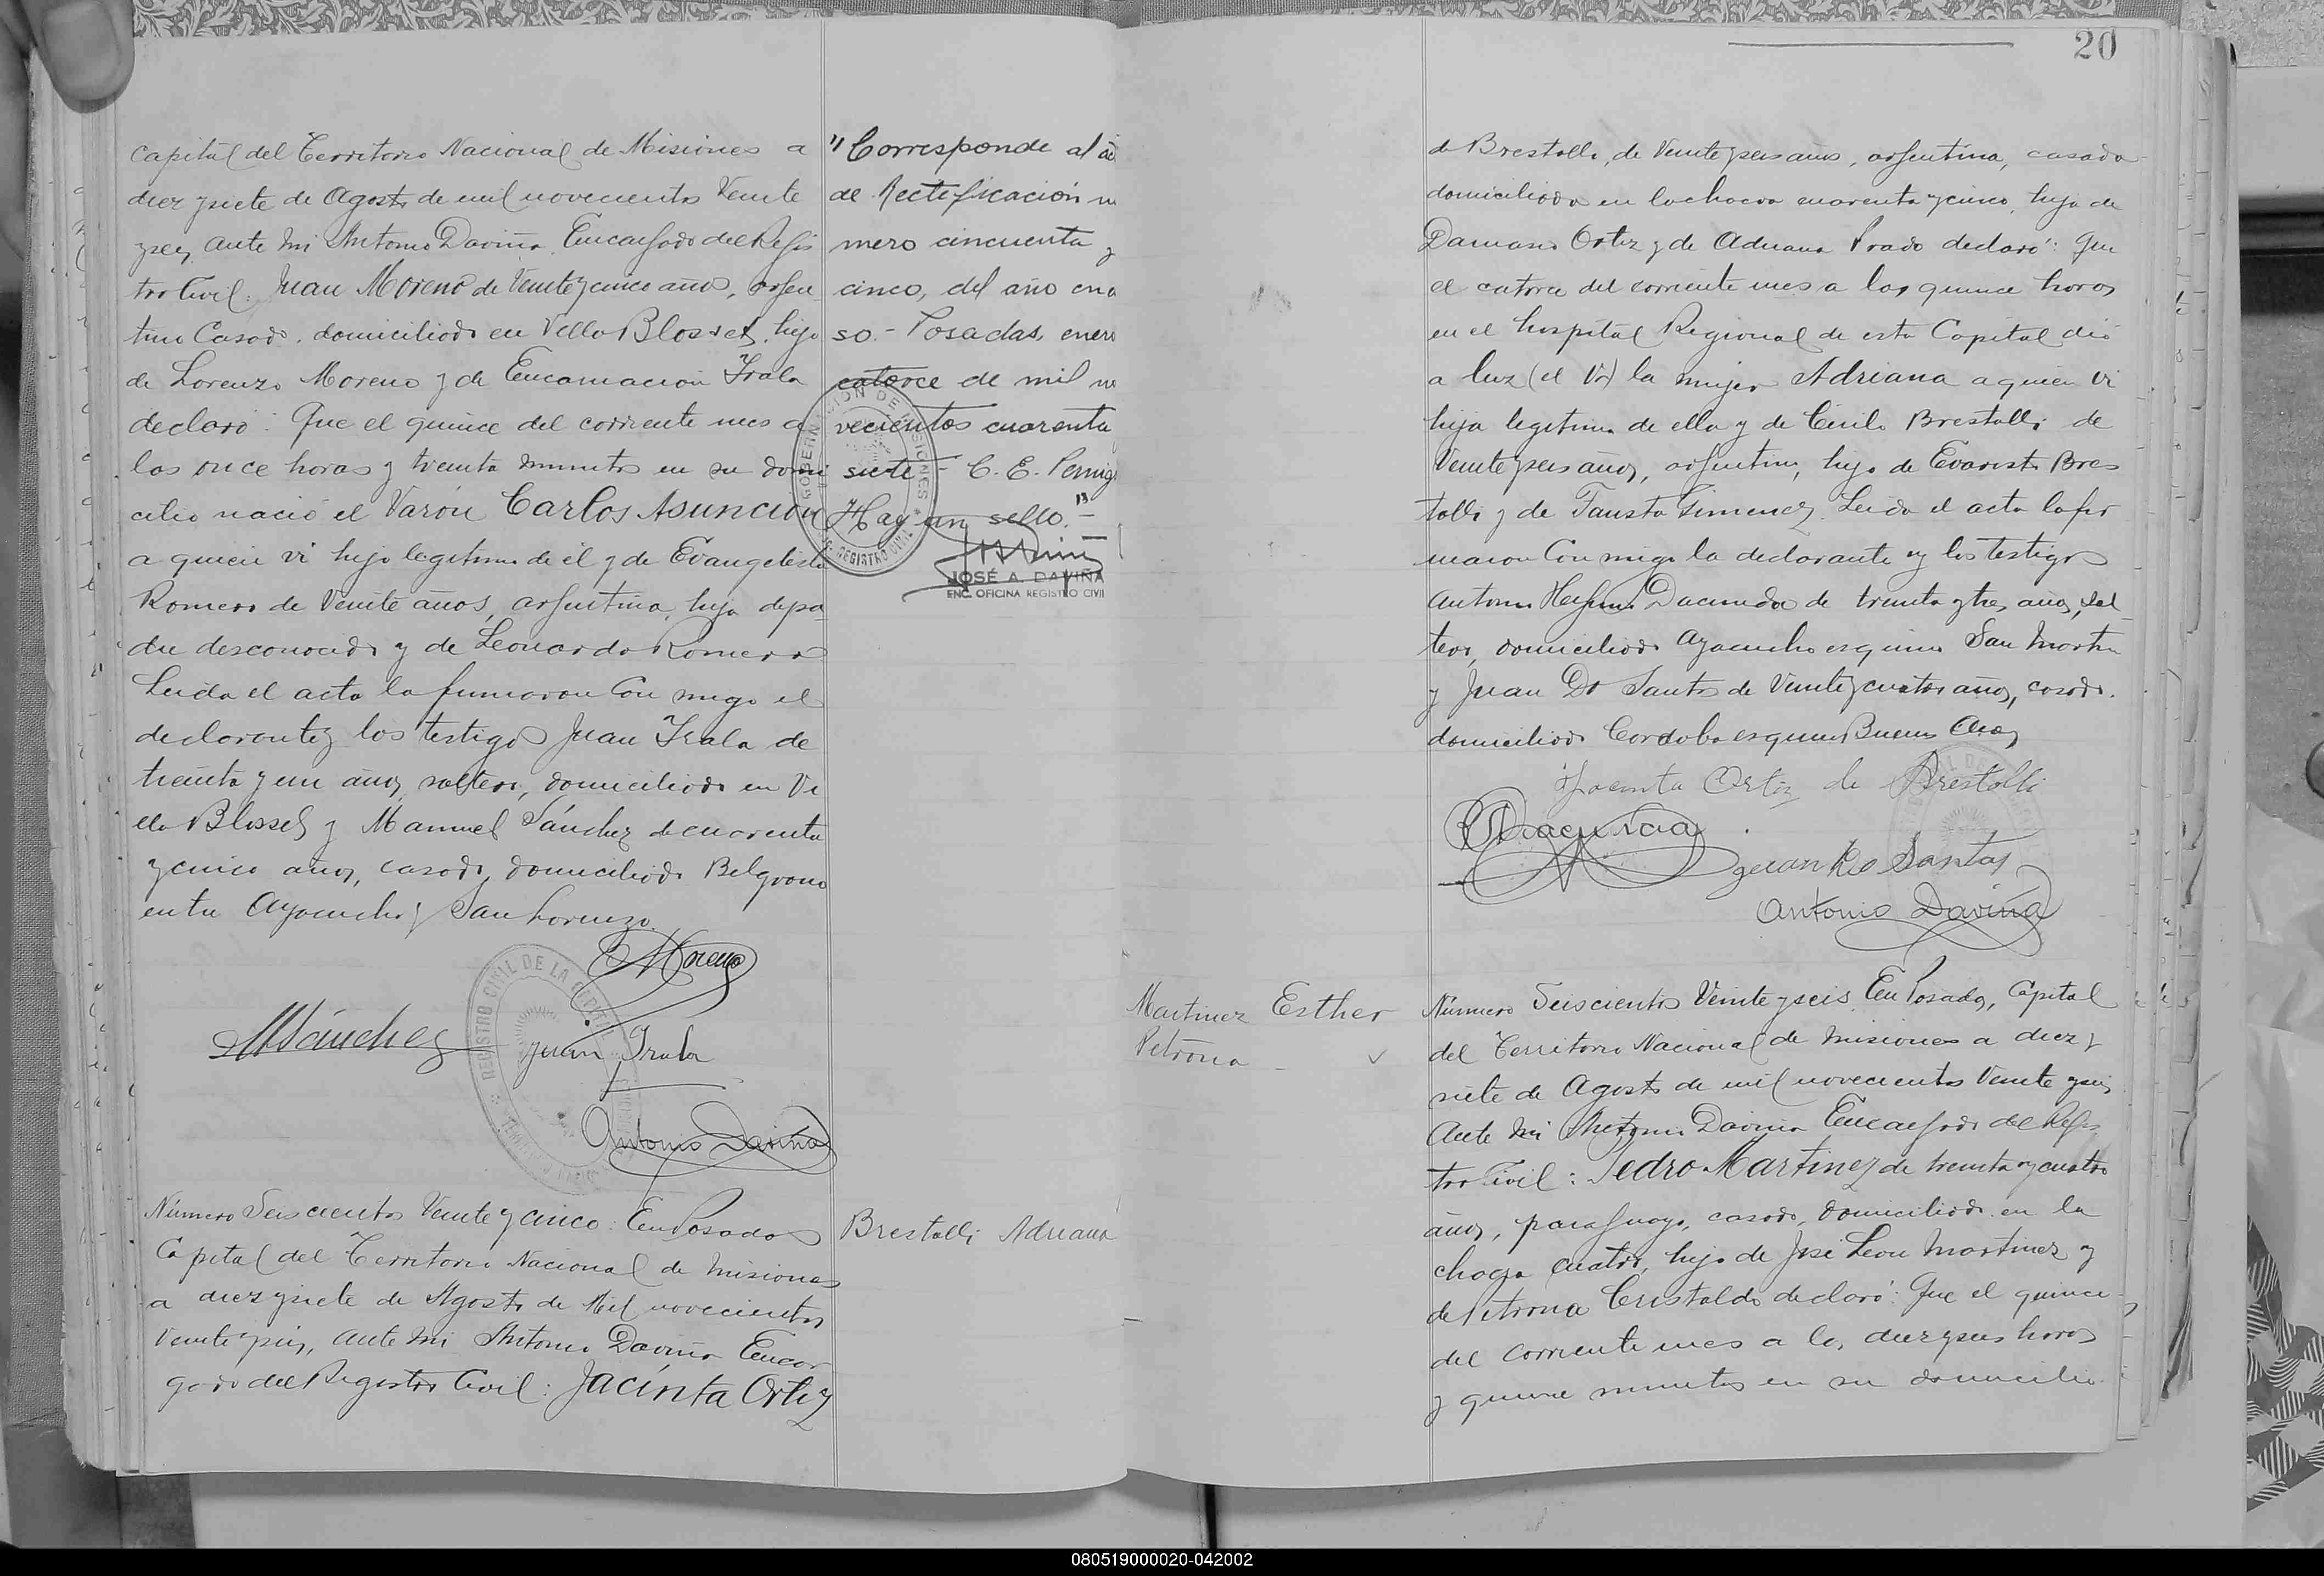 Capital del Territorio Nacional de Misiones a
diez y siete de Agosto de mil novecientos Veinte
y seis, Ante mi Antonio Daviña Encargado del Regis
tro Civil: Juan Moreno de Veinte y cinco años, argen
tino Casado, domiciliado en Villa Blosset, hijo
de Lorenzo Moreno y de Encarnacion Irala
declaró: Que el quince del corriente mes a
las once horas y treinta minutos en su domi
cilio nació el Varón Carlos Asunción
a quien vi hijo legitimo de él y de Evangelista
Romero de Veinte años, argentina, hija de pa
dre desconocido y de Leonarda Romero
Leida el acta la firmaron Con migo el
declarante y los testigos Juan Irala de
treinta y un años, soltero, domiciliado en Vi
lla Blosset y Manuel Sánchez de cuarenta
y cinco años, casado, domiciliado Belgrano
entre Ayacucho y San Lorenzo.
Moreno
MSánchez
Juan Irala
Antonio Daviña
Número Seiscientos Veinte y cinco: En Posadas
Capital del Territorio Nacional de Misiones
a diez y siete de Agosto de Mil novecientos
Veinte y seis, Ante mi Antonio Daviña Encar
gado del Registro Civil: Jacinta Ortiz
"Corresponde al
de Rectificación
mero cincuenta y
cinco, del año
so.- Posadas, enero
catorce de mil
vecientos cuarenta
siete - C. E.
Hay un sello."-
GOBERNACION DE MISIONES
REGISTRO CIVIL
JOSÉ A. DAVIÑA
ENC. OFICINA REGISTRO CIVIL
REGISTRO CIVIL DE LA CAPITAL
Brestolli Adriana
20
de Brestolli, de Veinte y seis años, argentina, casada
domiciliada en la chacra cuarenta y cinco, hija de
Damaso Ortiz y de Adriana Prado declaró: Que
el catorce del corriente mes a las quince horas
en el hospital Regional de esta Capital dió
a luz (el Vr) la mujer Adriana a quien vi
hija legitima de ella y de Cirilo Brestolli de
Veinte y seis años, argentino, hijo de Evaristo Bres
tolli y de Fausta Gimenez. Leida el acta la fir
maron Con migo la declarante y los testigos
Antonio de treinta y tres años, sol
tero, domiciliado Ayacucho esquina San Martin
y Juan Do Santos de Veinte y cuatro años, casado.
domiciliado Cordoba esquina Buenos Aires
Jacinta Ortiz de Brestolli
Juan Do Santos
Antonio Daviña
Martinez Esther
Petrona
Número Seiscientos Veinte y seis. En Posadas, Capital
del Territorio Nacional de Misiones a diez y
siete de Agosto de mil novecientos Veinte y seis
Ante mi Antonio Daviña Encargado del Regis
tro Civil: Pedro Martinez de treinta y cuatro
años, paraguayo, casado, domiciliado en la
chacra cuatro, hijo de José Leon Martinez y
de Petrona Cristaldo declaró: Que el quince
del corriente mes a las diez y seis horas
y quince minutos en su domicilio
080519000020-042002